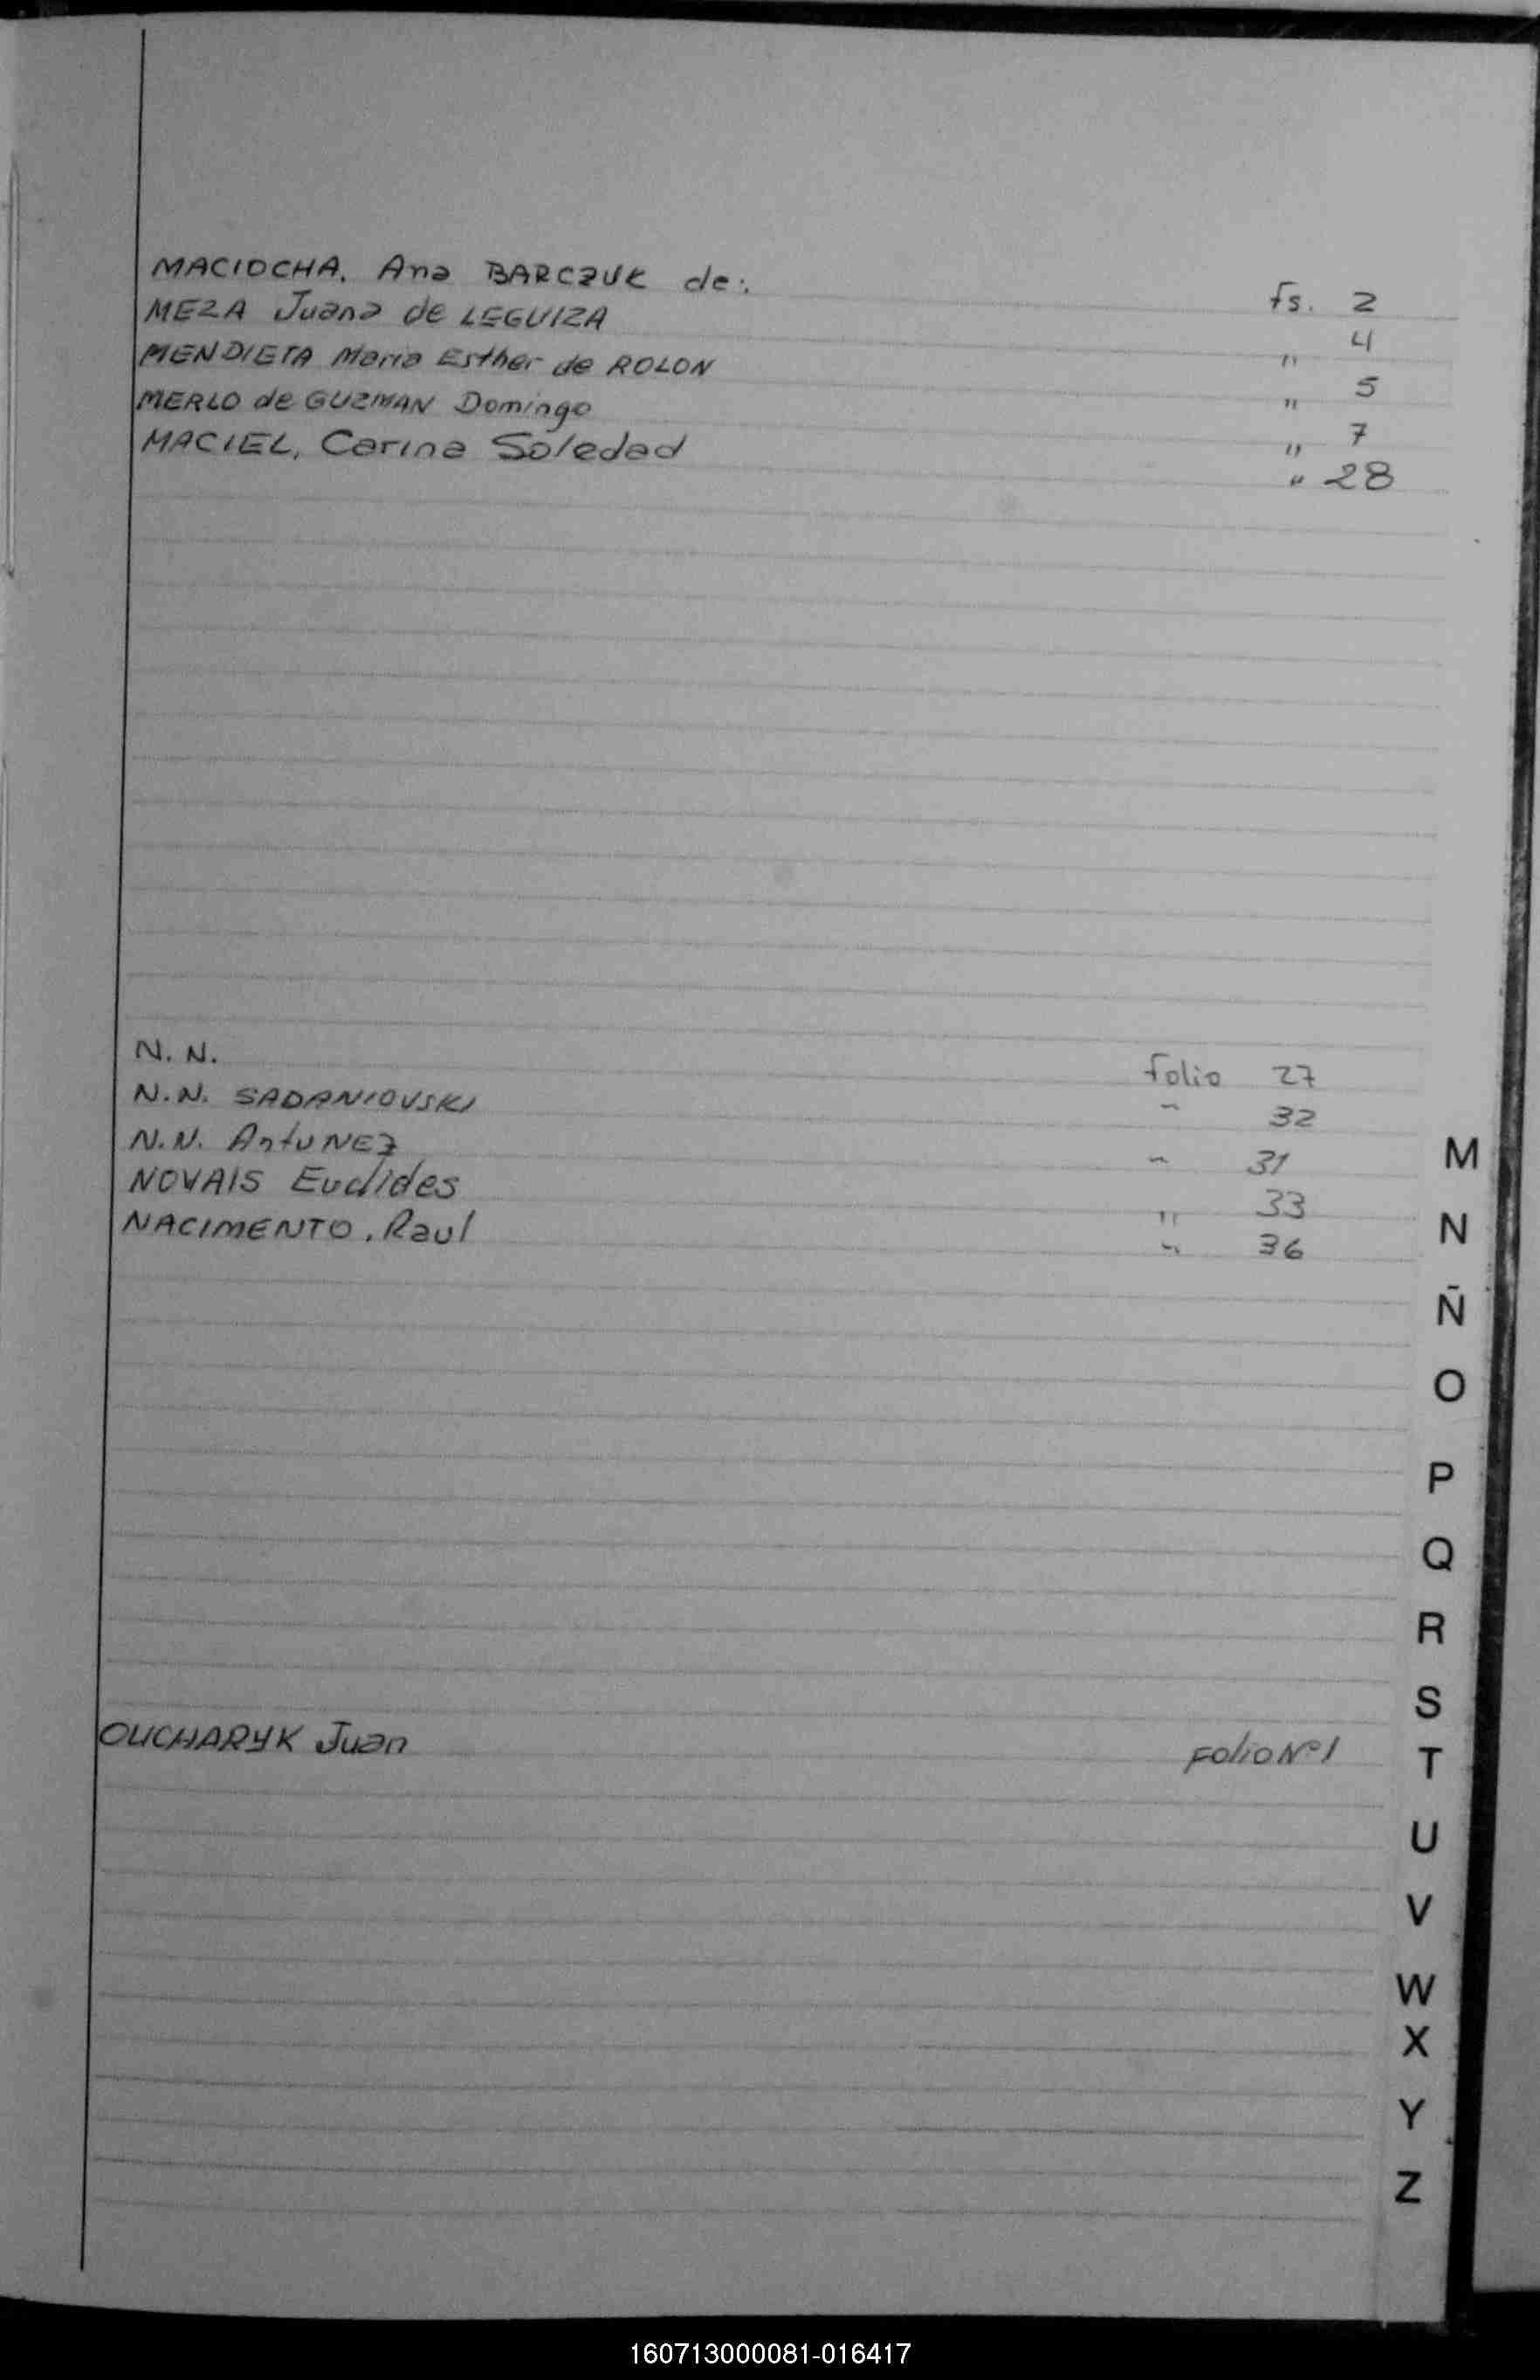 MACIOCHA, Ana BARCZUK de: Fs. 2
MEZA Juana de LEGUIZA " 4
MENDIETA Maria Esther de ROLON " 5
MERLO de GUZMAN Domingo " 7
MACIEL, Carina Soledad " 28
N. N. Folio 27
N.N. SADANIOVSKI " 32
N.N. AntuNEZ " 31
NOVAIS Euclides " 33
NACIMENTO, Raul " 36
OUCHARYK Juan Folio Nº 1
M
N
Ñ
O
P
Q
R
S
T
U
V
W
X
Y
Z
160713000081-016417